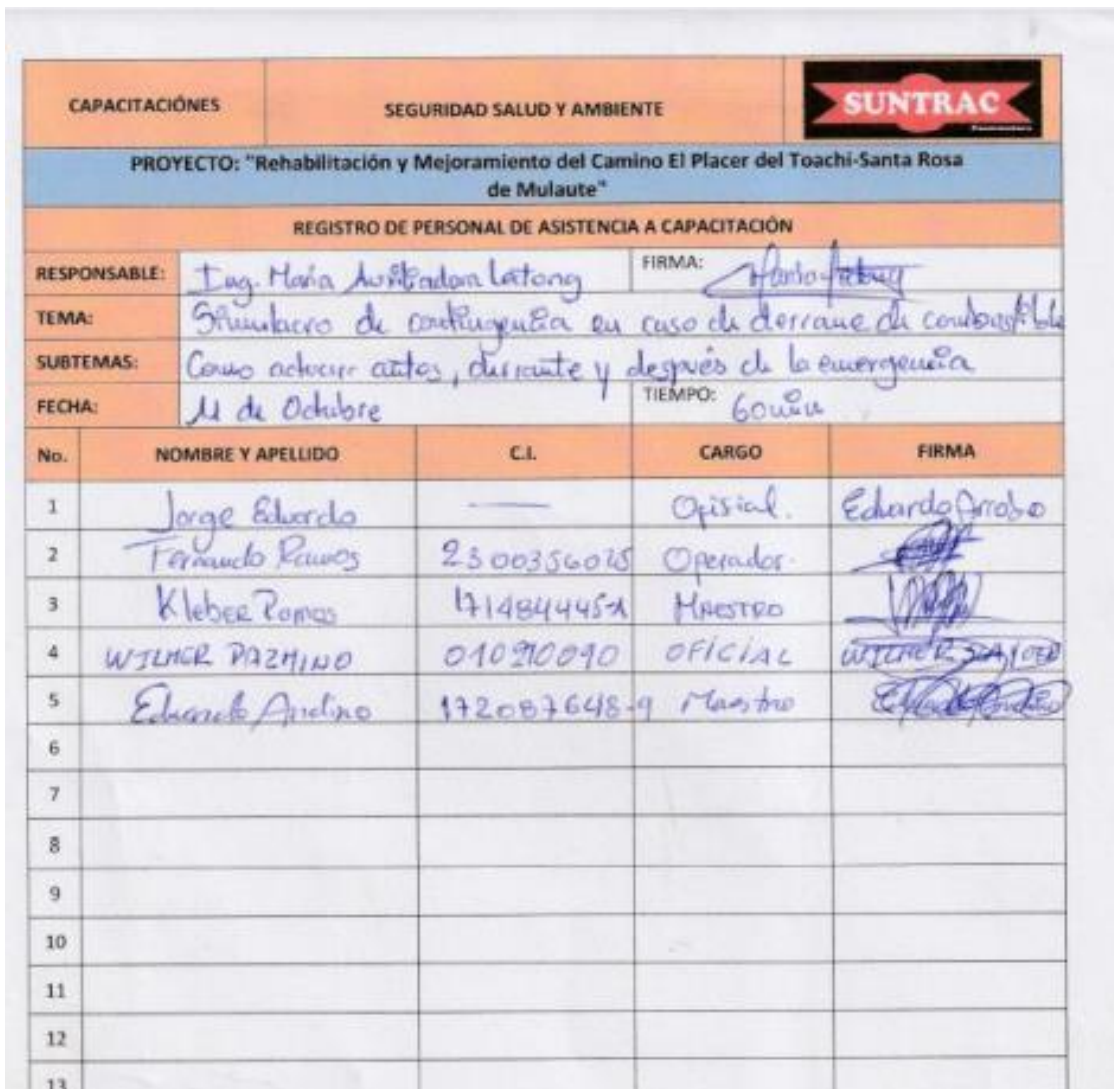 CAPACITACIÓNES
SEGURIDAD SALUD Y AMBIENTE
SUNTRAC
PROYECTO: "Rehabilitación y Mejoramiento del Camino El Placer del Toachi-Santa Rosa
de Mulaute"
REGISTRO DE PERSONAL DE ASISTENCIA A CAPACITACIÓN
RESPONSABLE: Ing. María Auxiliadora FIRMA:
TEMA: Simulacro de contingencia en caso de derrame de combustible
SUBTEMAS: Como actuar antes, durante y después de la emergencia
FECHA: 11 de Octubre TIEMPO: 60 min
No. NOMBRE Y APELLIDO C.I. CARGO FIRMA
1 Jorge Eduardo — Ofisial. Eduardo Arrobo
2 Fernando Ramos Operador.
3 Kleber Ramos MAESTRO
4 WILMER PAZMINO 010210090 OFICIAL WILMER
5 Eduardo Andino 172087648-9 Maestro
6
7
8
9
10
11
12
13